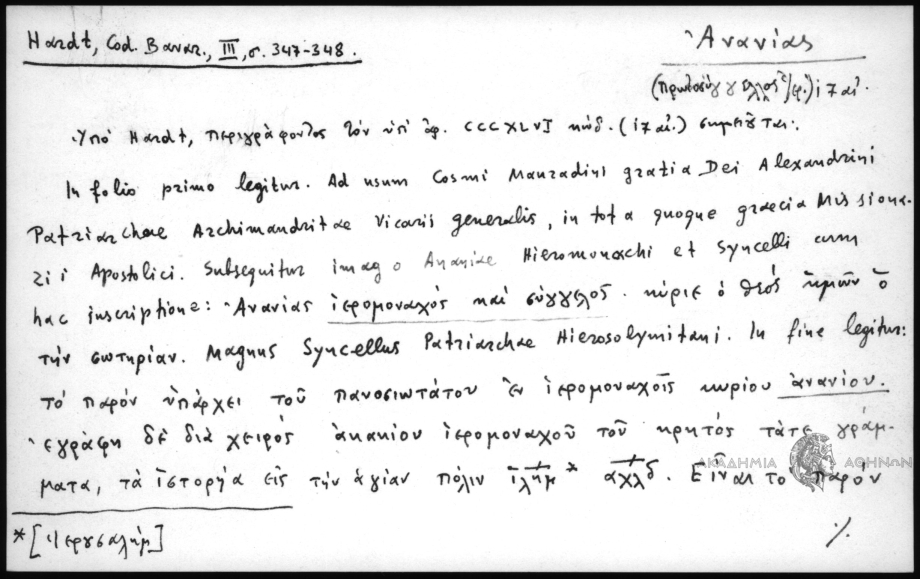 Hardt, Cod. Bavar., III, σ. 347-348.
Ἀνανίας
(πρωτοσύγγελλος /φ.) ιζ αἰ.
Ὑπό Hardt, περιγράφοντος τόν ὑπ' ἀρ. CCCXLVI κώδ. (ιζ αἰ.) σημειοῦται:
In folio primo legitur. Ad usum Cosmi Mauradini gratia Dei Alexandrini
Patriarchae Archimandritae Vicarii generalis, in tota quoque graecia Missiona-
rii Apostolici. Subsequitur imago Ananiae Hieromonachi et Syncelli cum
hac inscriptione: Ἀνανίας ἱερομοναχός καί σύγγελος. κύριε ὁ θεός ἡμῶν ὁ
τήν σωτηρίαν. Magnus Syncellus Patriarchae Hierosolymitani. In fine legitur:
τό παρόν ὑπάρχει τοῦ πανοσιωτάτου ἐν ἱερομοναχοῖς κυρίου ἀνανίου.
ἐγράφη δέ διά χειρός ἀκακίου ἱερομοναχοῦ τοῦ κρητός τάτε γράμ-
ματα, τά ἱστορήα εἰς τήν ἁγίαν πόλιν ἰλημ* αχλδ. Εἶναι τό παρόν
* [Ἱερουσαλήμ]
./.
ΑΚΑΔΗΜΙΑ ΑΘΗΝΩΝ